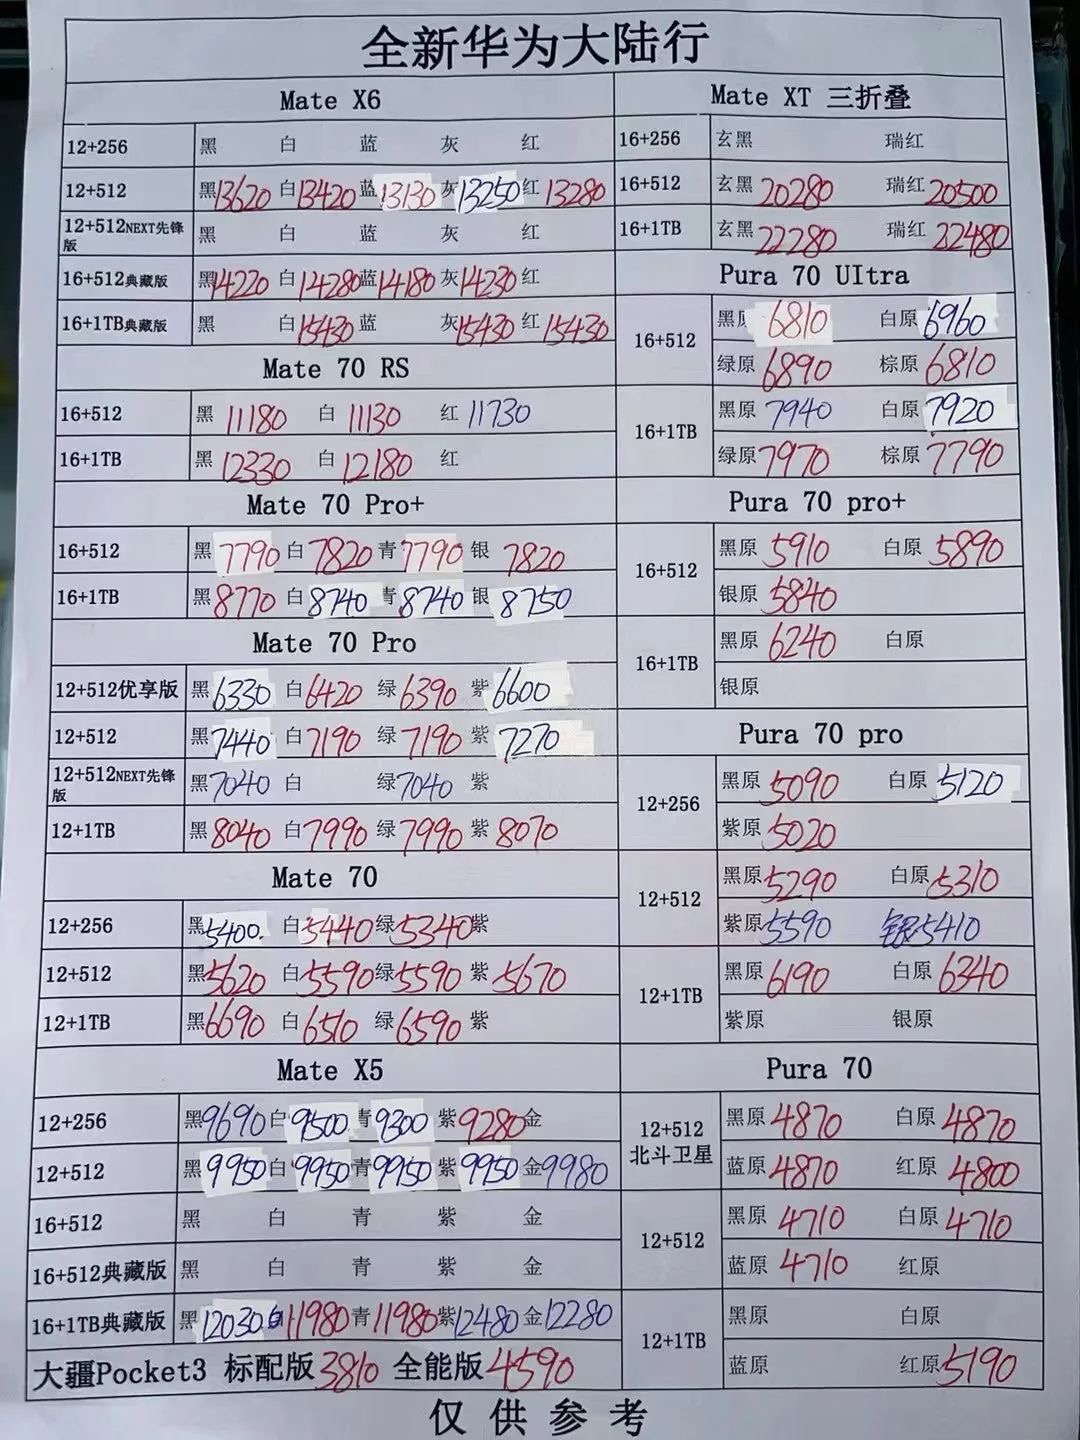 全新华为大陆行
Mate X6
12+256 黑 白 蓝 灰 红
12+512 黑13620 白13420 蓝13130 灰13250 红13280
12+512NEXT先锋版 黑 白 蓝 灰 红
16+512典藏版 黑14220 白14280 蓝14180 灰14230 红
16+1TB典藏版 黑 白15430 蓝 灰15430 红15430
Mate 70 RS
16+512 黑11180 白11130 红11730
16+1TB 黑12330 白12180 红
Mate 70 Pro+
16+512 黑7790 白7820 青7790 银7820
16+1TB 黑8770 白8740 青8740 银8750
Mate 70 Pro
12+512优享版 黑6330 白6420 绿6390 紫6600
12+512 黑7440 白7190 绿7190 紫7270
12+512NEXT先锋版 黑7040 白 绿7040 紫
12+1TB 黑8040 白7990 绿7990 紫8070
Mate 70
12+256 黑5400. 白5440 绿5340 紫
12+512 黑5620 白5590 绿5590 紫5670
12+1TB 黑6690 白6510 绿6590 紫
Mate X5
12+256 黑9690 白9500 青9300 紫9280 金
12+512 黑9950 白9950 青9950 紫9950 金9980
16+512 黑 白 青 紫 金
16+512典藏版 黑 白 青 紫 金
16+1TB典藏版 黑12030 白11980 青11980 紫12480 金12280
大疆Pocket3 标配版3810 全能版4590
Mate XT 三折叠
16+256 玄黑 瑞红
16+512 玄黑20280 瑞红20500
16+1TB 玄黑22280 瑞红22480
Pura 70 UItra
16+512 黑原6810 白原6960
绿原6890 棕原6810
16+1TB 黑原7940 白原7920
绿原7970 棕原7790
Pura 70 pro+
16+512 黑原5910 白原5890
银原5840
16+1TB 黑原6240 白原
银原
Pura 70 pro
12+256 黑原5090 白原5120
紫原5020
12+512 黑原5290 白原5310
紫原5590 银5410
12+1TB 黑原6190 白原6340
紫原 银原
Pura 70
12+512北斗卫星 黑原4870 白原4870
蓝原4870 红原4800
12+512 黑原4710 白原4710
蓝原4710 红原
12+1TB 黑原 白原
蓝原 红原5190
仅供参考